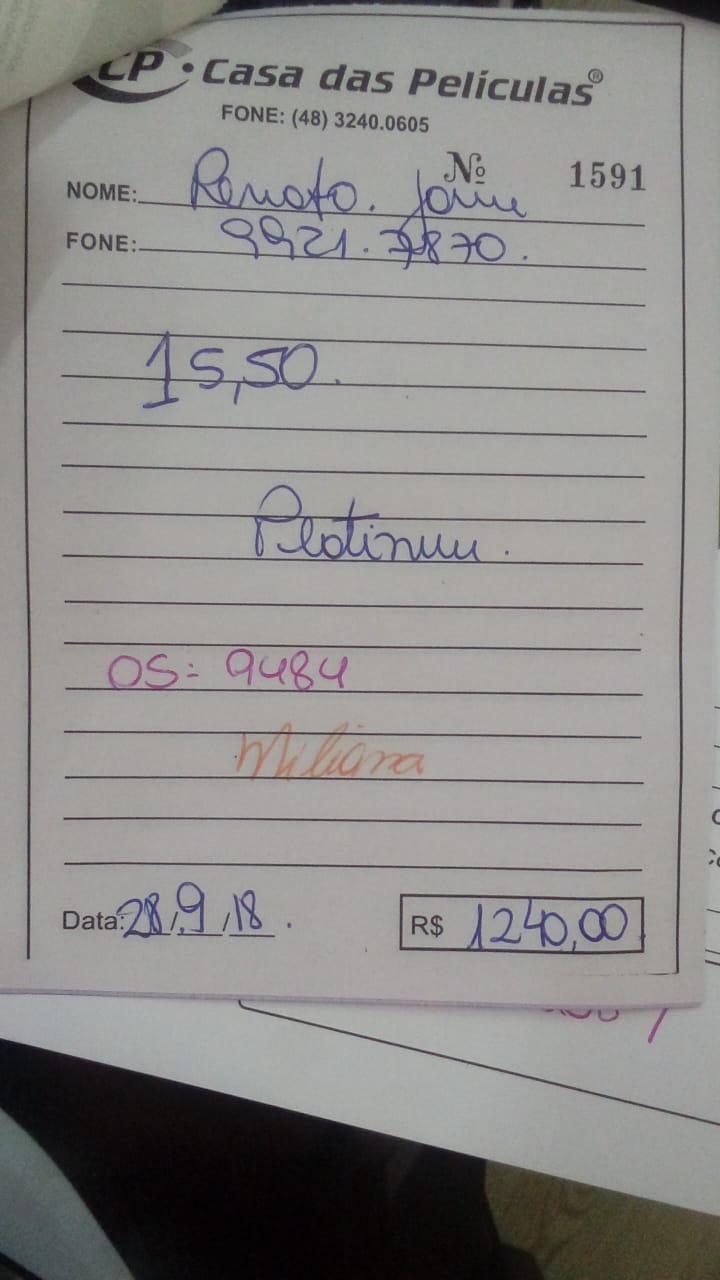 CP • Casa das Películas®
FONE: (48) 3240.0605
Nº 1591
NOME: Renato.
FONE: 9921.7870.
15,50.
Platinum.
OS: 9484
Miliana
Data: 28/9/18.
R$ 1240,00